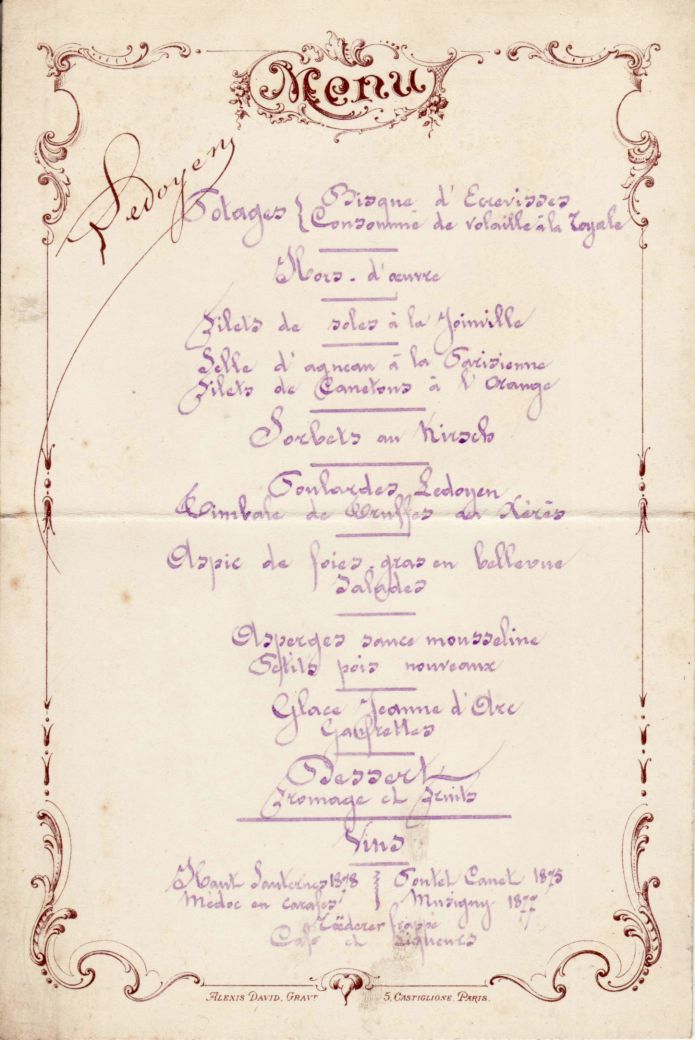 Menu
Ledoyen
Potages { Bisque d'Ecrevisses
Consommé de volaille à la Royale
Hors-d'œuvre
Filets de soles à la Joinville
Selle d'agneau à la Parisienne
Filets de Canetons à l'Orange
Sorbets au Kirsch
Poulardes Ledoyen
Timbale de Truffes au Xérès
Aspic de foies-gras en bellevue
Salades
Asperges sauce mousseline
Petits pois nouveaux
Glace Jeanne d'Arc
Gaufrettes
Dessert
Fromage et Fruits
Vins
Haut Sauternes 1878 Pontet Canet 1875
Médoc en carafes Musigny 1877
Rœderer frappé
Café et Liqueurs
ALEXIS DAVID, GRAVR 5, CASTIGLIONE. PARIS.